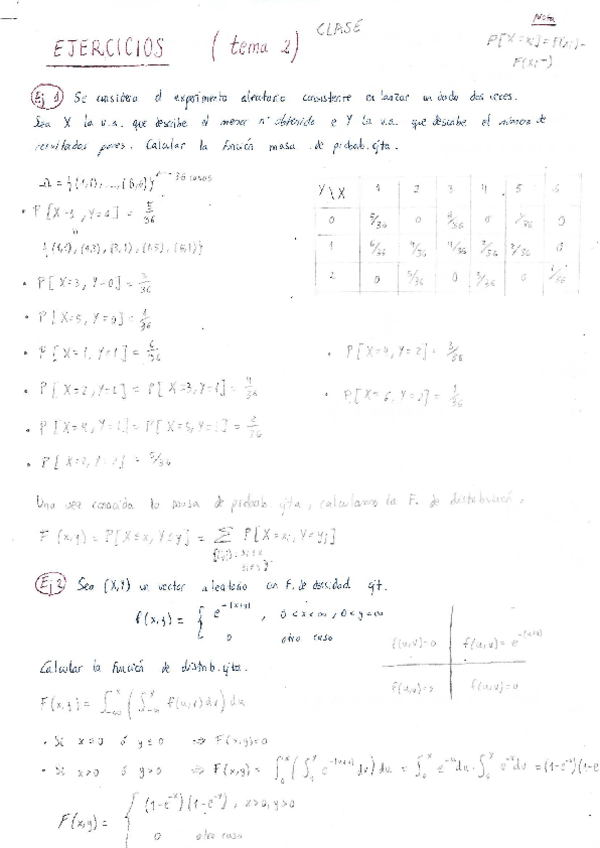 Nota
CLASE
P[X=xi] = F(xi) -
F(xi-)
EJERCICIOS (tema 2)
Ej 1 Se considera el experimento aleatorio consistente en lanzar un dado dos veces.
Sea X la v.a. que describe el menor nº obtenido e Y la v.a. que describe el número de
resultados pares. Calcular la función masa de probab. cjta.
Ω = {(1,1), ..., (6,6)} 36 casos
· P[X=1, Y=0] = 5/36
{(1,1), (1,3), (3,1), (1,5), (5,1)}
· P[X=3, Y=0] = 3/36
· P[X=5, Y=0] = 1/36
· P[X=1, Y=1] = 6/36
· P[X=2, Y=1] = P[X=3, Y=1] = 4/36
· P[X=4, Y=1] = P[X=5, Y=1] = 2/36
· P[X=2, Y=2] = 5/36
Y\X 1 2 3 4 5 6
0 5/36 0 3/36 0 1/36 0
1 6/36 4/36 4/36 2/36 2/36 0
2 0 5/36 0 3/36 0 1/36
· P[X=4, Y=2] = 3/36
· P[X=6, Y=2] = 1/36
Una vez conocida la masa de probab. cjta, calculamos la F. de distribución.
F(x,y) = P[X≤x, Y≤y] = Σ P[X=xi, Y=yj]
Ej 2 Sea (X,Y) un vector aleatorio con F. de densidad cjt.
f(x,y) = { e^-(x+y) , 0<x<∞, 0<y<∞
0 otro caso
Calcular la función de distrib. cjta.
f(u,v)=0 f(u,v)=e^-(u+v)
f(u,v)=0 f(u,v)=0
F(x,y) = ∫_-∞^x (∫_-∞^y f(u,v)dv) du
· Si x≤0 ó y≤0 ⇒ F(x,y)=0
· Si x>0 ó y>0 ⇒ F(x,y) = ∫_0^x (∫_0^y e^-(u+v) dv) du = ∫_0^x e^-u du · ∫_0^y e^-v dv = (1-e^-x)(1-e
F(x,y) = { (1-e^-x)(1-e^-y) , x>0, y>0
0 otro caso